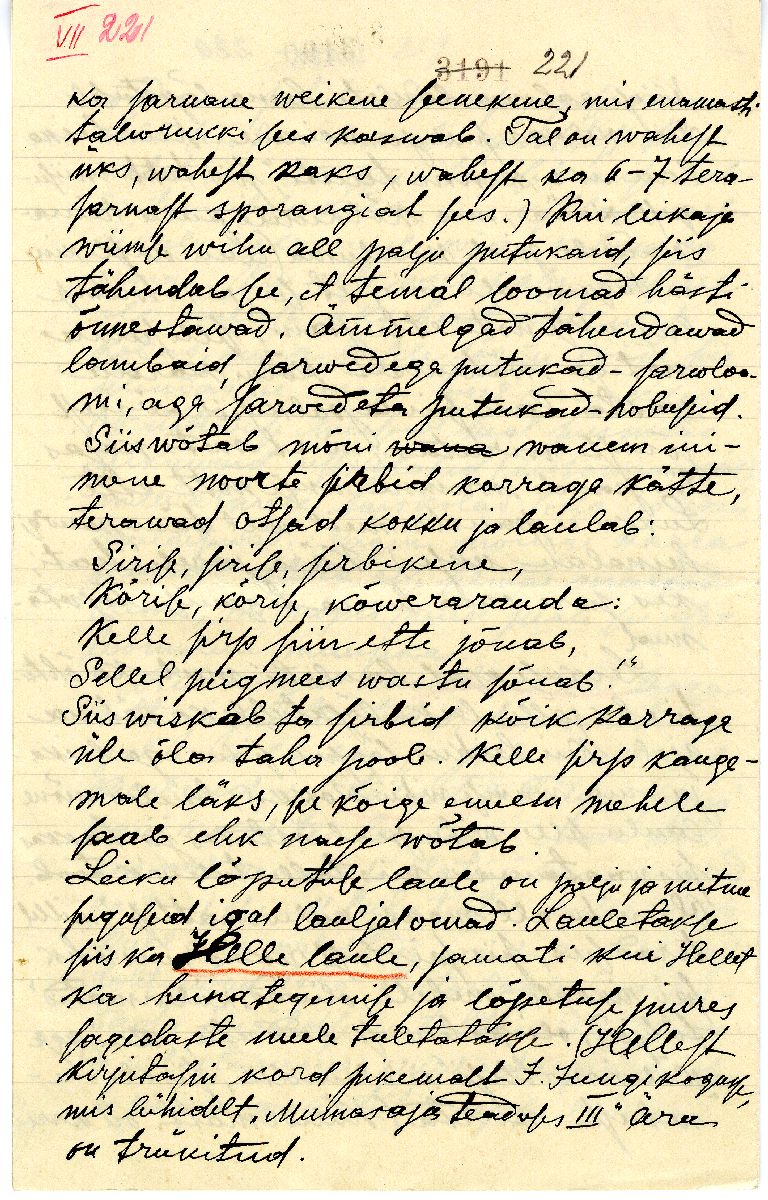 VII 221
3191 221
ka sarnane weikene seenekene, mis enamasti
talwerukki sees kaswab. Tal on wahest
üks, wahest kaks, wahest ka 6-7 tera-
sarnast sporangiat sees.) Kui leikaja
wiimse wihu all palju putukaid, siis
tähendab see, et temal loomad hästi
õnnestawad. Ämmelgad tähendawad
lambaid, sarwedega putukad - sarwloo-
mi, aga sarwedeta putukad - hobusid.
Siis wõtab mõni wana wanem ini-
mene noorte sirbid korraga kätte,
terawad otsad kokku ja laulab:
Sirise, sirise, sirbikene,
Kõrise, kõrise, kõwerarauda:
Kelle sirp siin ette jõuab,
Sellel peigmees wastu sõuab!"
Siis wiskab ta sirbid kõik korraga
üle õla taha poole. Kelle sirp kauge-
male läks, se kõige ennem mehele
saab ehk naese wõtab.
Leiku lõputuse laule on palju ja mitme
sugusid igal lauljal omad. Lauletakse
siis ka Helle laule, samati kui Hellet
ka heinategemise ja lõpetuse juures
sagedaste meele tuletatakse. (Hellest
kirjutasin kord pikemalt J. Jungi kogusse,
mis lühidelt "Muinasaja teadusse III" ära
on trükitud.